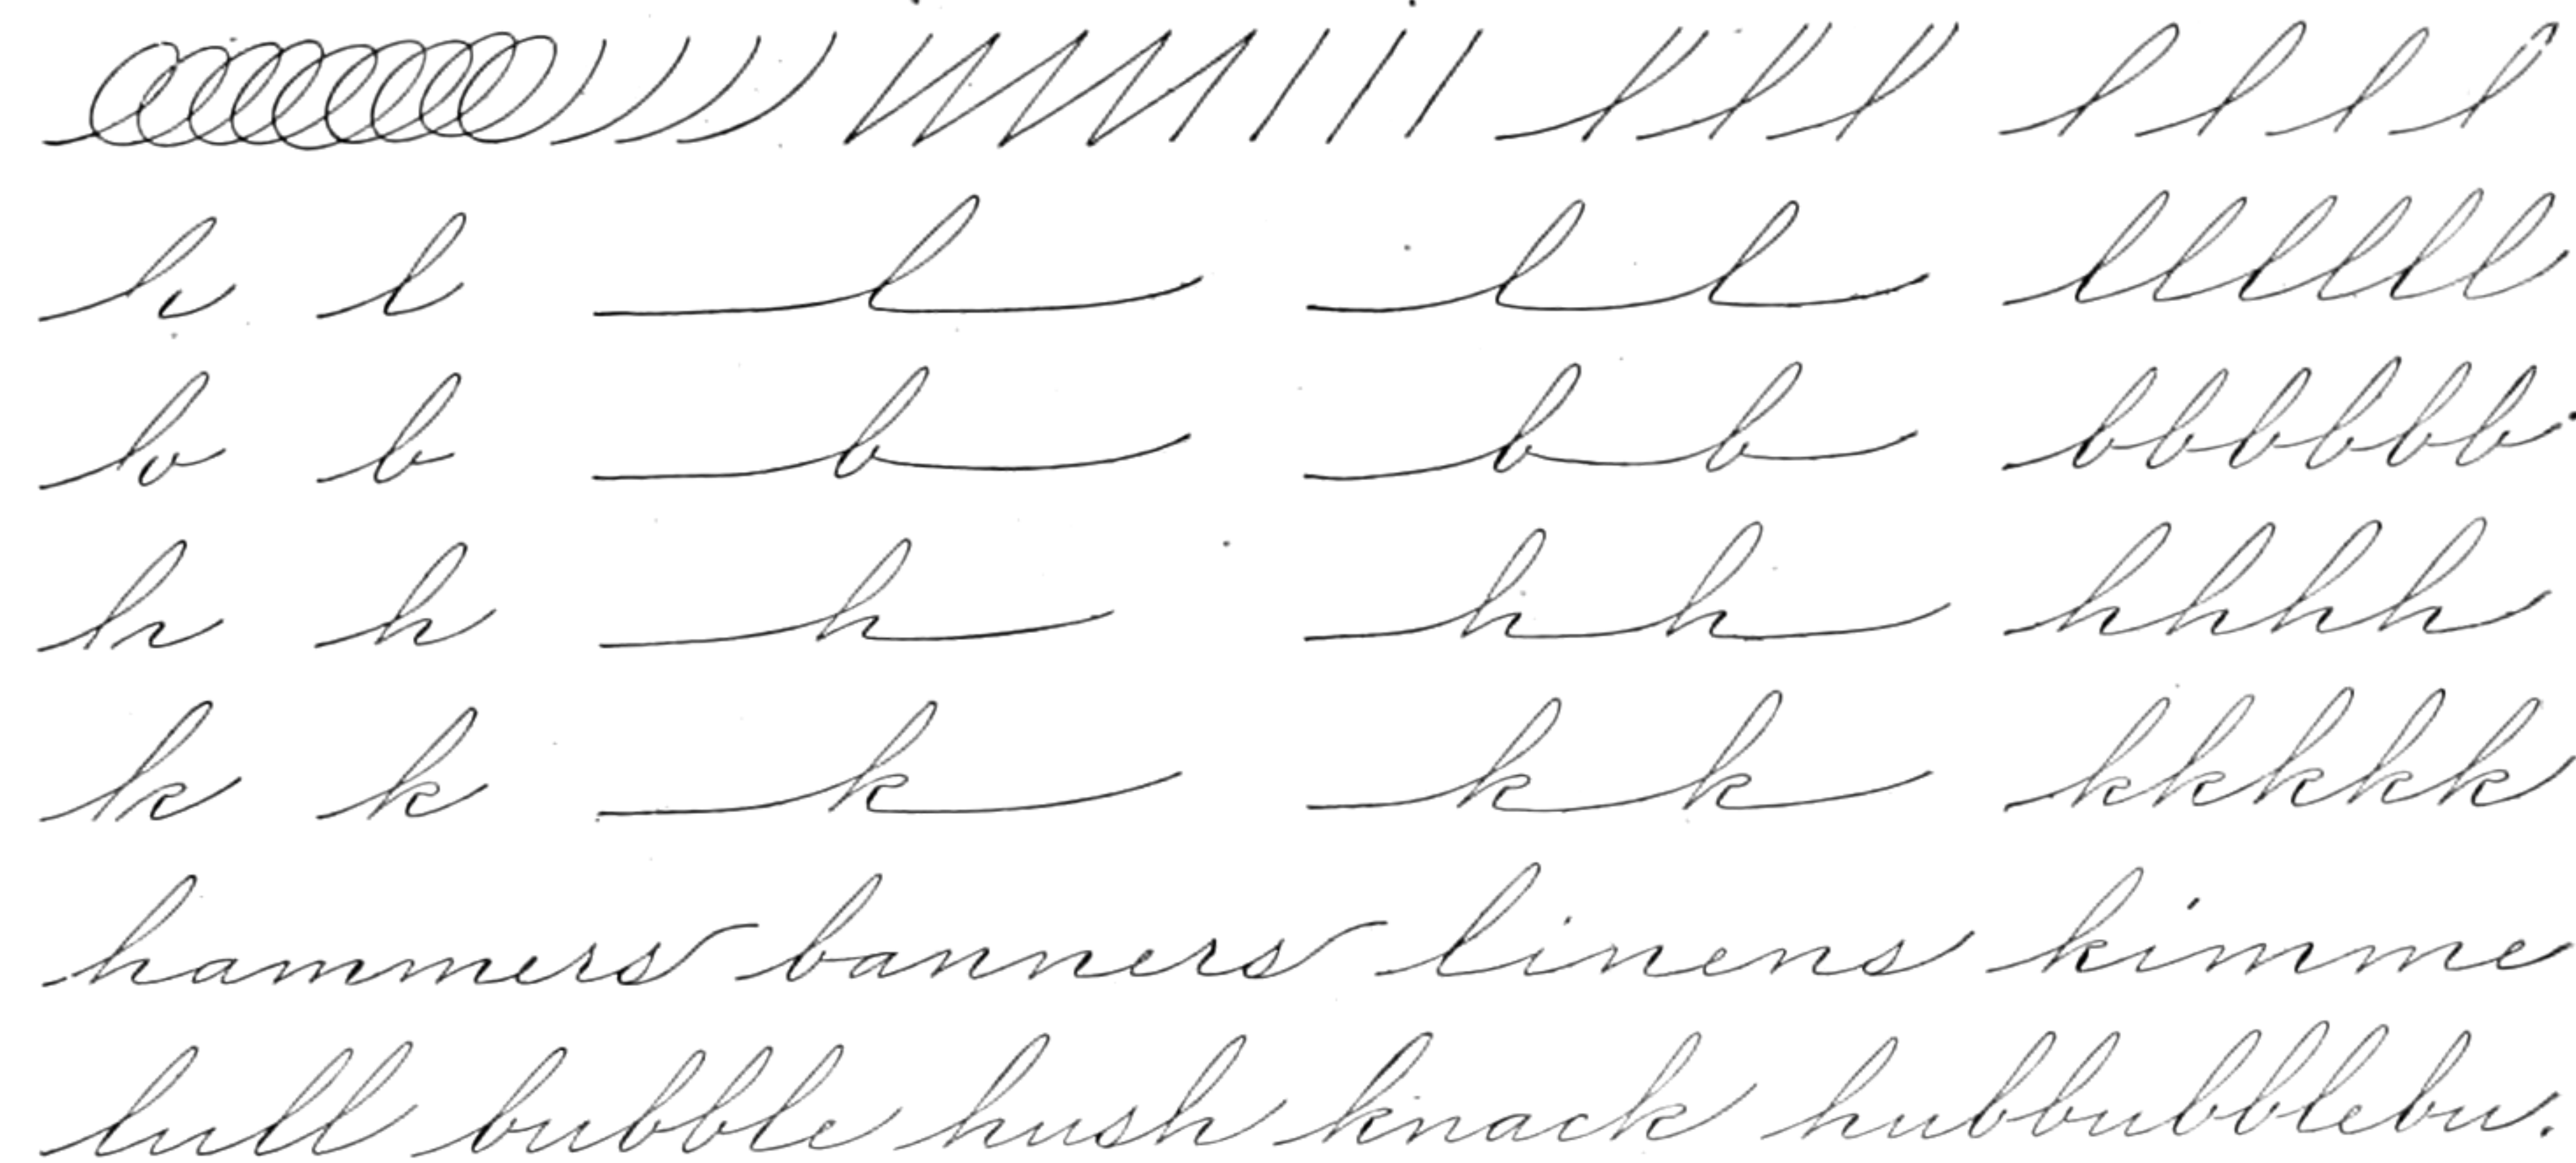 l l l l l l l
l l l l l l l l l l l
b b b b b b b b b b b
h h h h h h h h h
k k k k k k k k k k
hammers banners linens kimme
lull bubble hush knack hubbubblebu.